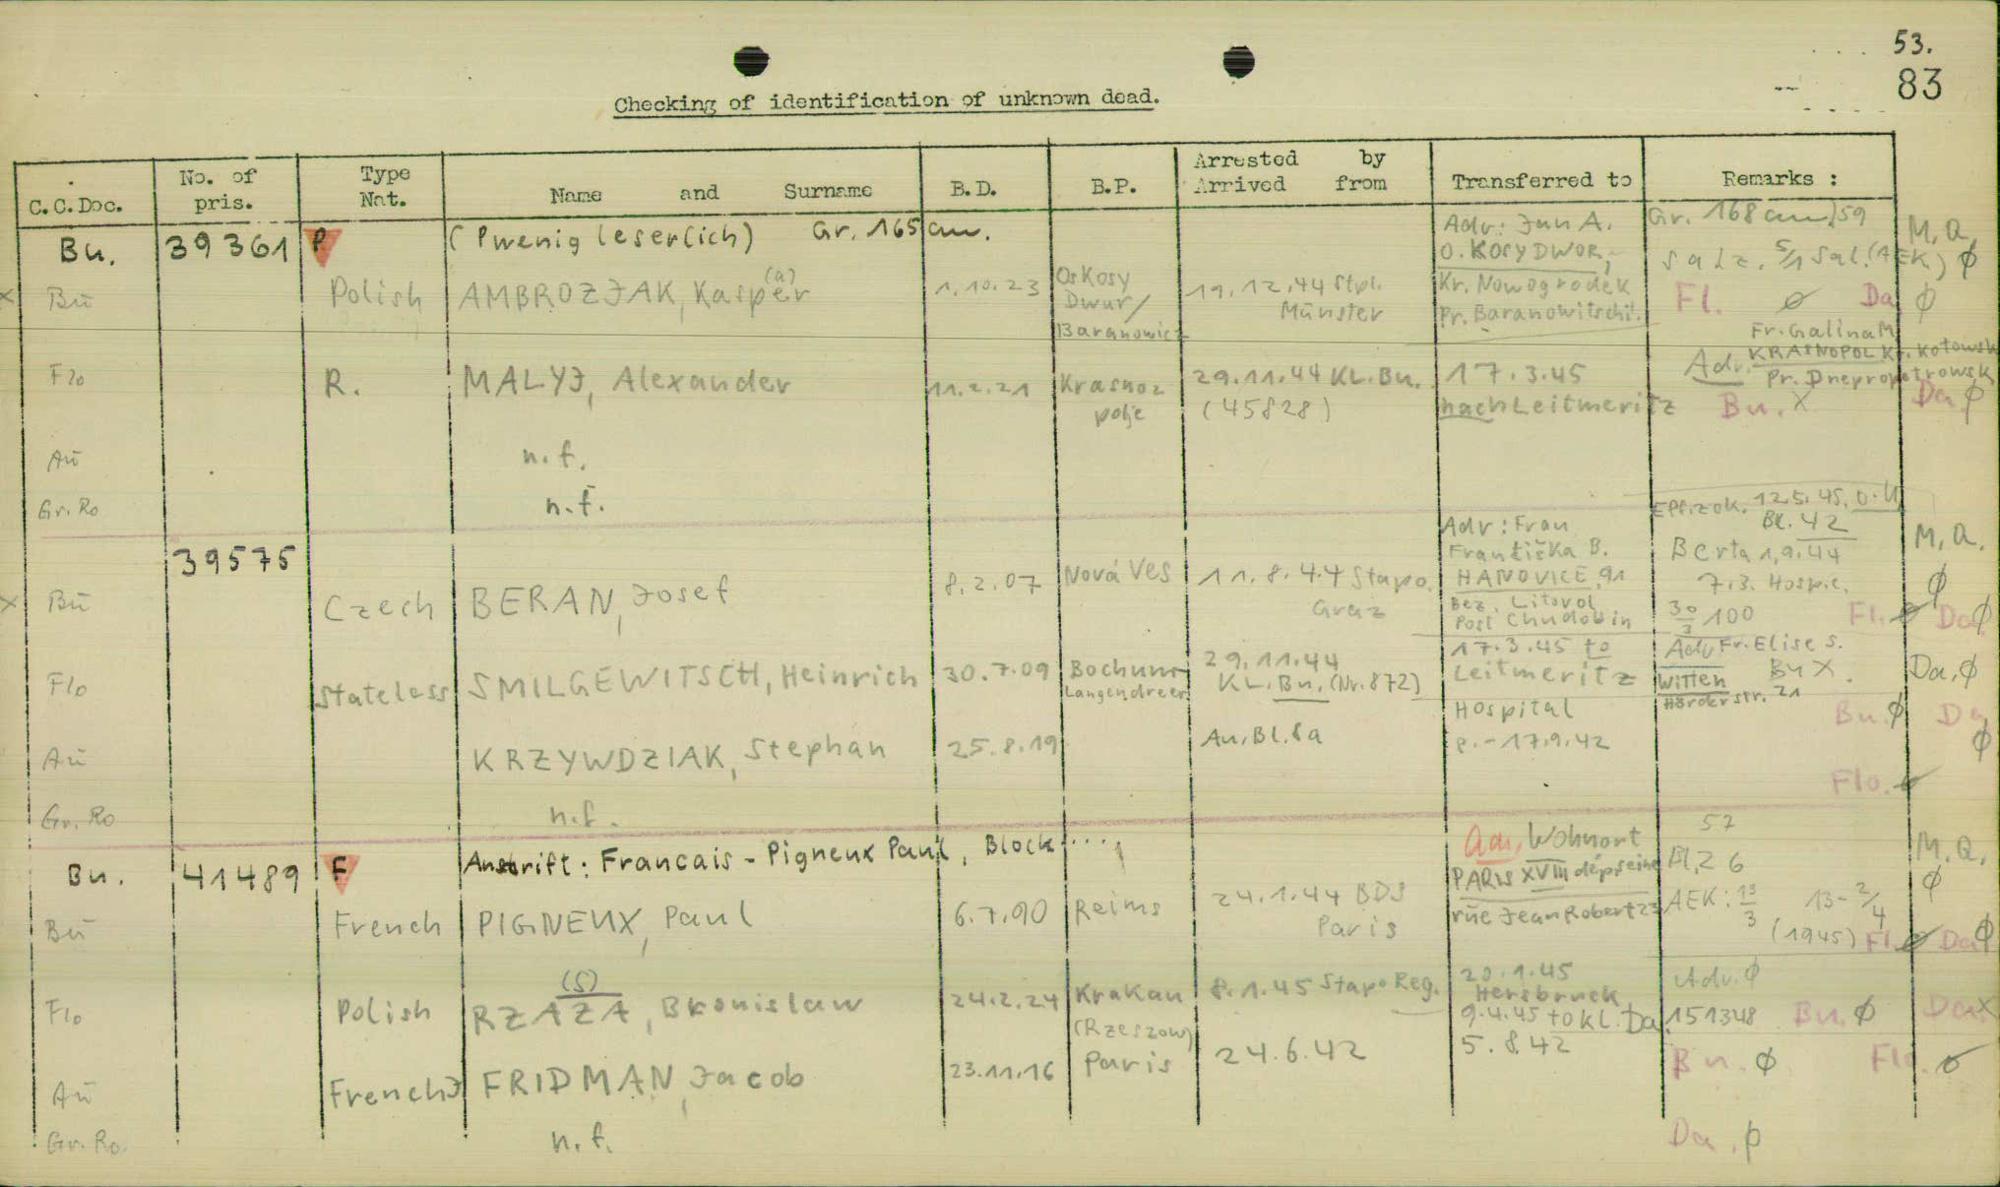 53.
83
Checking of identification of unknown dead.
C.C.Doc. No. of pris. Type Nat. Name and Surname B.D. B.P. Arrested by Arrived from Transferred to Remarks :
Bu. 39361 P (Pwenig leserlich) Gr. 165 cm. Adr: Jan A. Gr. 168 cm, 59 M, a,
O. KOSY DWOR, Salz. 5/1 Sal. (AEK) ϕ
Bu Polish AMBROZJAK, Kasper (a) 1.10.23 Os Kosy Dwur/ Baranowicz 19.12.44 Stpl. Münster Kr. Nowogrodek Pr. Baranowitschi. Fl. ø Da ϕ
Fr. Galina M
Flo R. MALYJ, Alexander 11.2.21 Krasno= polje 29.11.44 KL. Bu. (45828) 17.3.45 nach Leitmeritz Adr. KRASNOPOL Kr. Kotowsk Pr. Dnepropetrowsk
Bu. X Da ϕ
Au n.f.
Gr. Ro n.f.
39575 Adr: Frau Františka B. 12.5.45. Bl. 42 M, a.
Bu Czech BERAN, Josef 8.2.07 Nová Ves 11.8.44 Stapo. Graz HANOVICE, 91 Bez. Litovol Post Chudobin Berta 1.9.44 ϕ
7.3. Hospic.
30/3 100 Fl. ø Da ϕ
Flo Stateless SMILGEWITSCH, Heinrich 30.7.09 Bochum- Langendreer 29.11.44 KL. Bu. (Nr. 872) 17.3.45 to Leitmeritz Adr Fr. Elise S. Witten Hörderstr. 21 Bu X. Da, ϕ
Hospital Bu. ϕ Da ϕ
Au KRZYWDZIAK, Stephan 25.8.19 Au, Bl. 8a - 17.9.42
Flo. ø
Gr. Ro n.f.
Bu. 41489 F Anschrift: Francais - Pigneux Paul, Block.... Adr, Wohnort 57 M. a,
PARIS XVIII dép seine Bl, 26 ϕ
Bu French PIGNEUX, Paul 6.7.90 Reims 24.1.44 BDS Paris rue Jean Robert 23 AEK: 13/3 13- 2/4 (1945) Fl. ø Da ϕ
Flo Polish RZAZA (S), Bronislaw 24.2.24 Krakau (Rzeszow) 8.1.45 Stapo Reg. 20.1.45 Hersbruck 9.4.45 to KL. Da. Adr. ϕ
151348 Bu. ϕ Da X
Au French J FRIDMAN, Jacob 23.11.16 Paris 24.6.42 5.8.42 Bu. ϕ Flo. ø
Gr. Ro. n.f. Da. ϕ